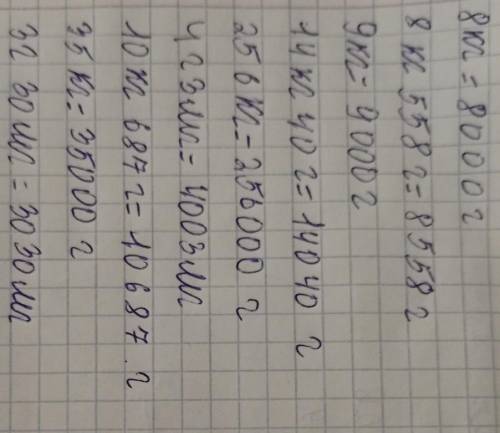 8кг = 8000 г
8 кг 558 г = 8558 г
9кг = 9000 г
14 кг 40 г = 14040 г
256 кг = 256000 г
4 г 3 мг = 4003 мг
10 кг 687 г = 10687 г
35 кг = 35000 г
3 г 30 мг = 3030 мг